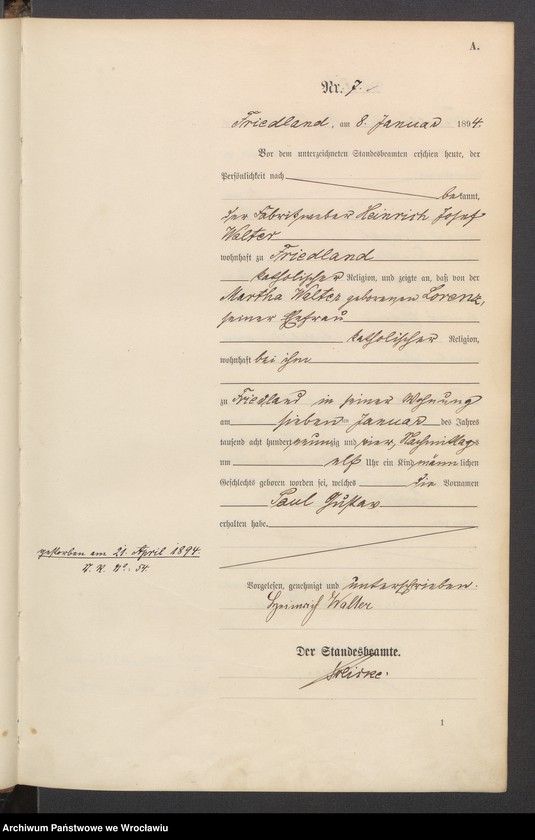 A.
Nr. 7.
Friedland, am 8. Januar 1894.
Vor dem unterzeichneten Standesbeamten erschien heute, der
Persönlichkeit nach
bekannt,
der Fabrikweber Heinrich Josef
Walter
wohnhaft zu Friedland
katholischer Religion, und zeigte an, daß von der
Martha Walter geborenen Lorenz,
seiner Ehefrau
katholischer Religion,
wohnhaft bei ihm
zu Friedland in seiner Wohnung
am sieben Januar des Jahres
tausend acht hundert neunzig und vier, Nachmittags
um elf Uhr ein Kind männlichen
Geschlechts geboren worden sei, welches die Vornamen
Paul Gustav
erhalten habe.
gestorben am 21. April 1894.
No. 54.
Vorgelesen, genehmigt und unterschrieben.
Heinrich Walter
Der Standesbeamte.
1
Archiwum Państwowe we Wrocławiu